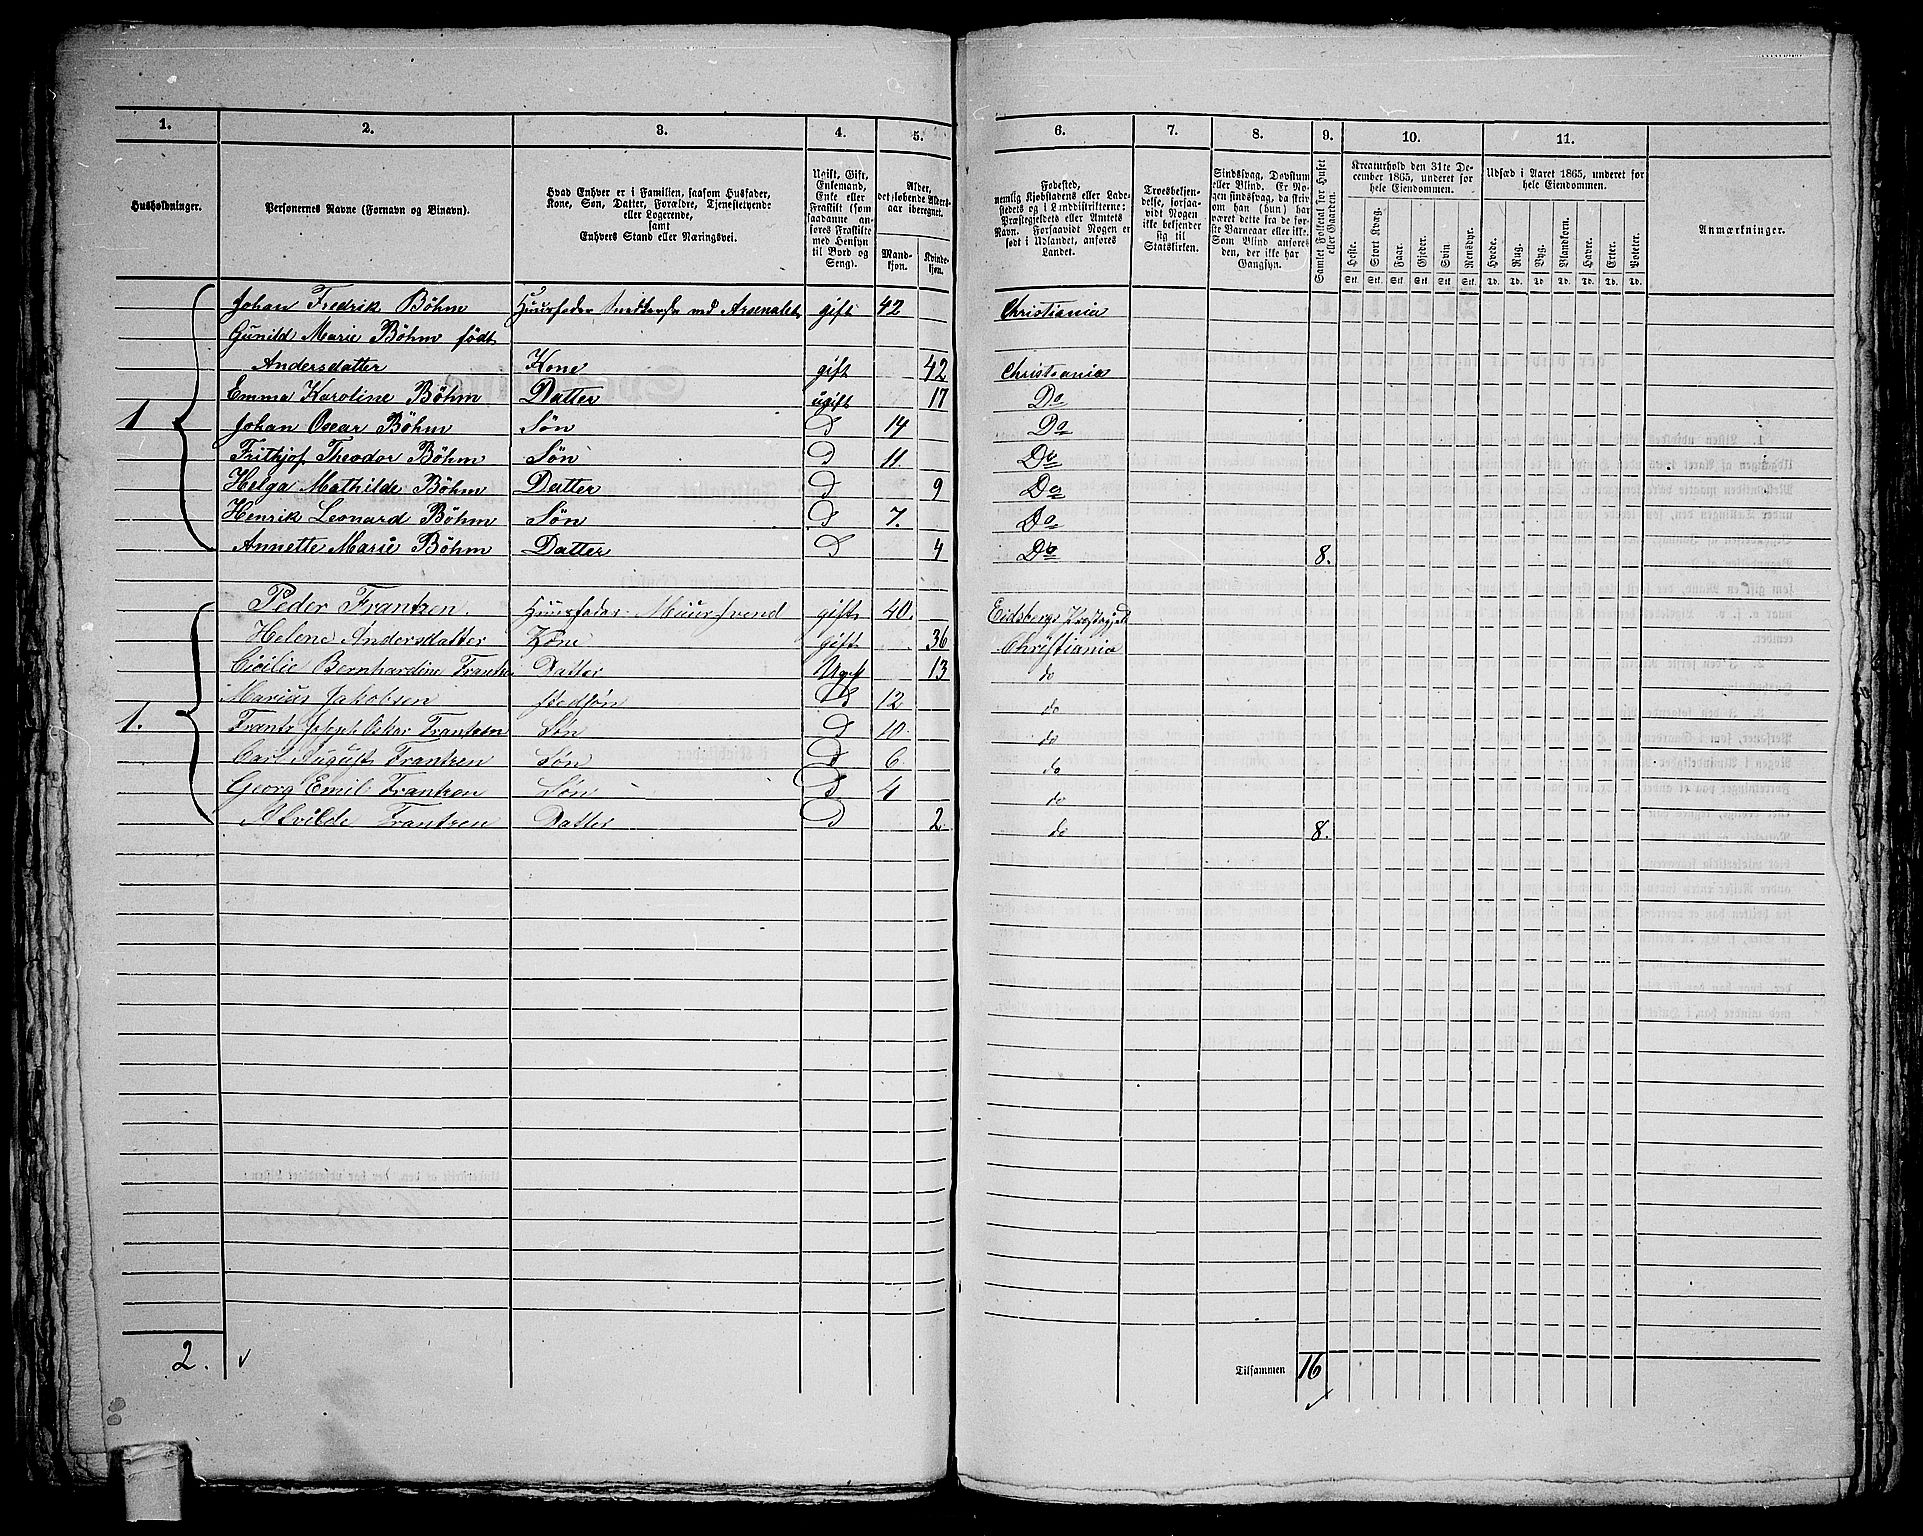 1. 2. 3. 4. 5. 6. 7. 8. 9. 10. 11.
Husholdninger.
Personernes Navne (Fornavn og Binavn).
Hvad Enhver er i Familien, saasom Husfader,
Kone, Søn, Datter, Forældre, Tjenestetyende
eller Logerende,
samt
Enhvers Stand eller Næringsvei.
Ugift, Gift,
Enkemand,
Enke eller
Fraskilt (som
saadanne an-
føres Fraskilte
med Hensyn
til Bord og
Seng).
Alder,
det løbende Alders-
aar iberegnet.
Mand-
kjøn.
Kvinde-
kjøn.
Fødested,
nemlig Kjøbstadens eller Lade-
stedets og i Landdistrikterne:
Præstegjeldets eller Amtets
Navn. Forsaavidt Nogen er
født i Udlandet, anføres
Landet.
Troesbekjen-
delse, forsaa-
vidt Nogen
ikke bekjender
sig til
Statskirken.
Sindssvag, Døvstum
eller Blind. Er No-
gen sindssvag, da skriv
om han (hun) har
været dette fra de før-
ste Barneaar eller ikke.
Som Blind anføres
den, der ikke har
Gangsyn.
Samlet Folketal for Huset
eller Gaarden.
Kreaturhold den 31te De-
cember 1865, underet for
hele Eiendommen.
Heste. Stort Kvæg. Faar. Gjeder. Svin Rensdyr.
Stk. Stk. Stk. Stk. Stk. Stk.
Udsæd i Aaret 1865, underet for
hele Eiendommen.
Hvede. Rug. Byg. Blandkorn. Havre. Erter. Poteter.
Td. Td. Td. Td. Td. Td. Td.
Anmærkninger.
Johan Fredrik Böhm Huusfader ved Arsenalet gift 42 Christiania
Gunild Marie Böhm født
Andersdatter Kone gift 42 Christiania
Emma Karoline Böhm Datter ugift 17 Do
1 Johan Oscar Böhm Søn D 14 Do
Frithjof Theodor Böhm Søn D 11. Do
Helga Mathilde Böhm Datter D 9 Do
Henrik Leonard Böhm Søn D 7. Do
Annette Marie Böhm Datter D 4 Do 8.
Peder Frantzen. Huusfader Muursvend gift 40. Eidsbergs
Helene Andersdatter Kone gift 36 Christiania
Cicilie Bernhardine Frantzen Datter Ugift 13 do
Marius Jakobsen stedsøn D 12 do
1. Frantz Joseph Oskar Frantzen Søn D 10. do
Carl August Frantzen Søn D 6. do
Georg Emil Frantzen Søn D 4 do
Alvilde Frantzen Datter D 2 do 8.
2.
Tilsammen 16